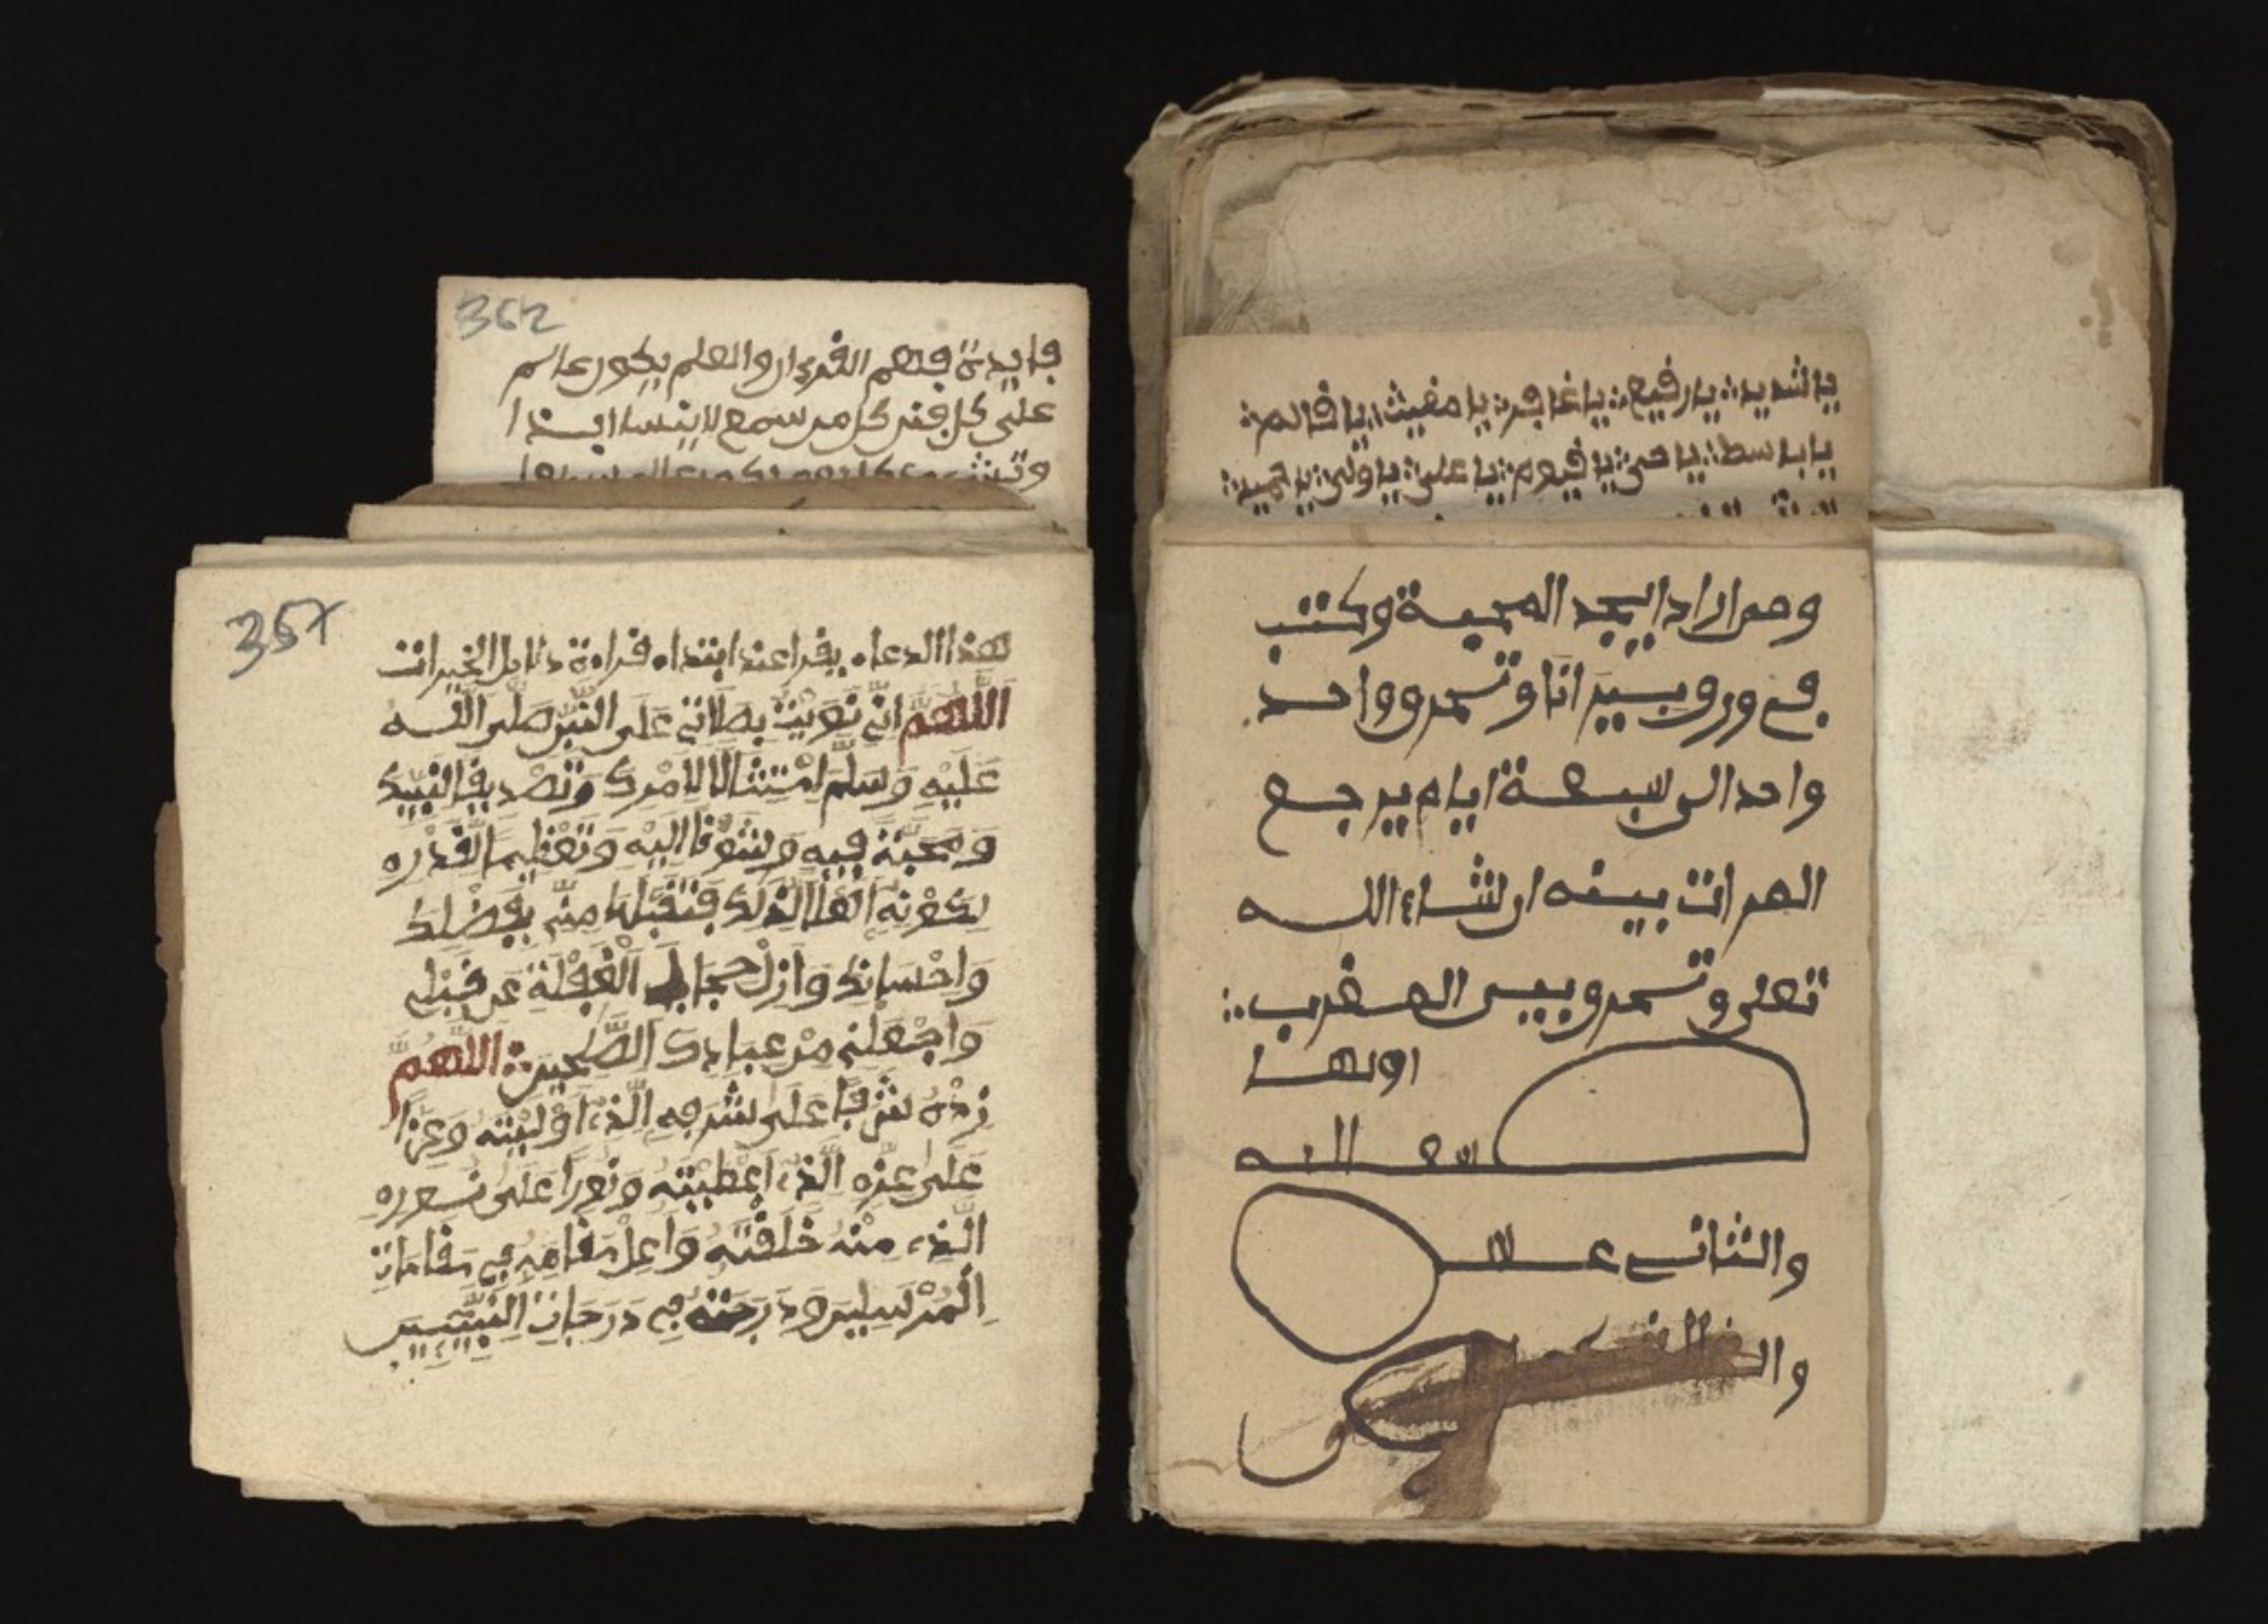 362
فايدة فهم القرءان والعلم يكون عالم
على كل فن كل من سمع لا ينسا ابدا
357
هذا الدعاء يقرا عند ابتداء قراءة دلايل الخيرات
اَللَّهُمَّ اِنِّي نَوَيْتُ بِصَلَاتِي عَلَى النَّبِيِّ صَلَّى اللَّه
عَلَيْهِ وَسَلَّمَ اِمْتِثَالًا لِاَمْرِكَ وَتَصْدِيقًا لِنَبِيِّكَ
وَمَحَبَّةً فِيهِ وَشَوْقًا اِلَيْهِ وَتَعْظِيمًا لِقَدْرِهِ
لِكَوْنِهِ اَهْلًا لِذَلِكَ فَتَقَبَّلْهَا مِنِّي بِفَضْلِكَ
وَاِحْسَانِكَ وَاَزِلْ حِجَابَ الْغَفْلَةِ عَن قَلْبِي
وَاجْعَلْنِي مِنْ عِبَادِكَ الصَّلِحِينَ اللَّهُمَّ
زِدْهُ شَرَفًا عَلَى شَرَفِهِ الَّذِي اَوْلَيْتَهُ وَعِزًّا
عَلَى عِزِّهِ الَّذِي اَعْطَيْتَهُ وَنُورًا عَلَى نُورِهِ
الَّذِي مِنْهُ خَلَقْتَهُ وَاَعْلِ مَقَامَهُ فِي مَقَامَاتِ
الْمُرْسَلِينَ وَدَرَجَتَهُ فِي دَرَجَاتِ النَّبِيِّينَ
يا شديد يا رفيع يا غافر يا مغيث يا قائم
يا باسط يا حي يا قيوم يا علي يا ولي يا حميد
ومن اراد ايجد المحبة وكتب
في ورو بسير انا وتسمرو واحد
واحد الى سبعة ايام يرجع
المرات بيته ان شاء الله
تعلى وتسمرو بيس العقرب
اولها
سع الله
والثاني علا